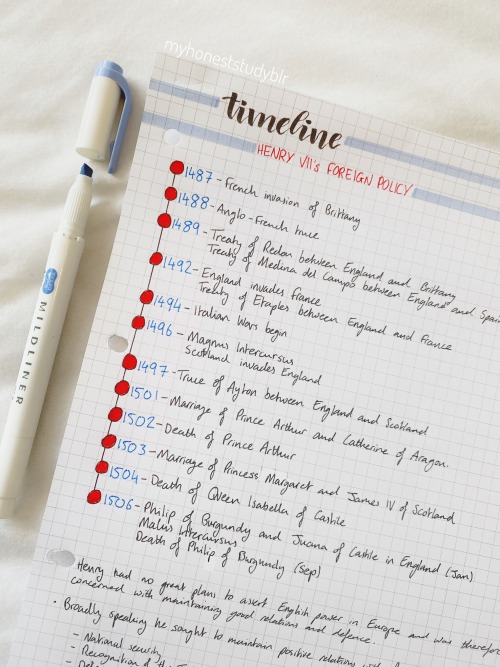 myhoneststudyblr
timeline
HENRY VII's FOREIGN POLICY
1487 - French invasion of Brittany
1488 - Anglo-French truce
1489 - Treaty of Redon between England and Brittany
Treaty of Medina del Campo between England and Spain
1492 - England invades France
Treaty of Etaples between England and France
1494 - Italian Wars begin
1496 - Magnus Intercursus
Scotland invades England
1497 - Truce of Ayton between England and Scotland
1501 - Marriage of Prince Arthur and Catherine of Aragon.
1502 - Death of Prince Arthur
1503 - Marriage of Princess Margaret and James IV of Scotland
1504 - Death of Queen Isabella of Castile
1506 - Philip of Burgundy and Juana of Castile in England (Jan)
Malus Intercursus
Death of Philip of Burgundy (Sep)
Henry had no great plans to assert English power in Europe and was
concerned with maintaining good relations and defence.
· Broadly speaking he sought to maintain positive relations
- National security
- Recognition of
MILDLINER